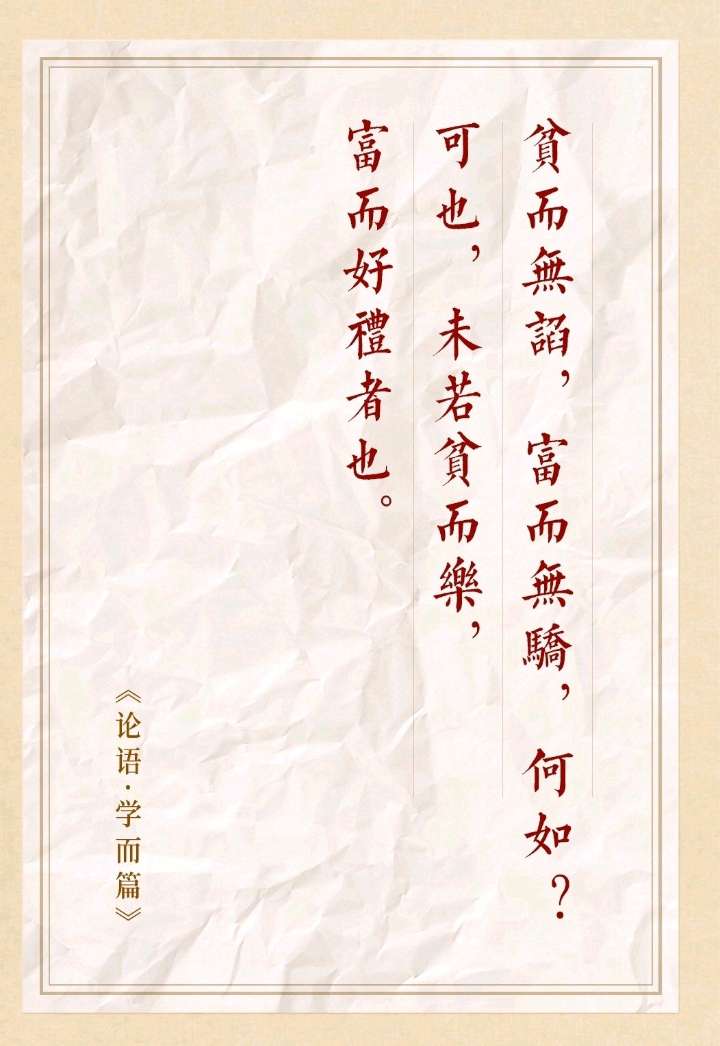 貧而無諂，富而無驕，何如？
可也，未若貧而樂，
富而好禮者也。
《论语·学而篇》